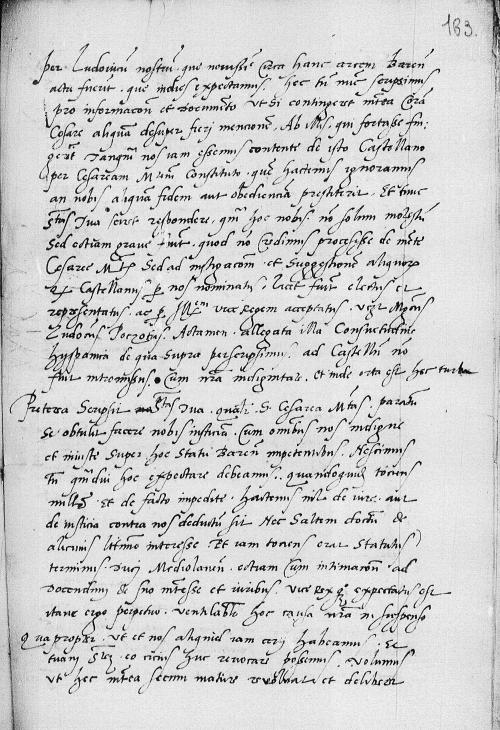 183.
per Ludovicū nostrū. que novissīe circa hanc arcem Bareñ
actū fuerit. que indies expectamus. hec tñ nūc scripsimus
pro informacoñ et documēto ut si contingeret īterea corā
Cesare aliquā desuper fierj mencionē. Ab illis. qui fortasse fin:
gerēt Tanquā nos iam essemus contente de isto Castellano
per Cesaream Mtem Constituto. quē hactenus ignoramus
an nobis aliquā fidem aut obedienciam prestiterit. Et tunc
Stas Tua sciret respondere. qm̄ hoc nobis. no solum molestū
Sed etiam grave fuit. quod no credimus processisse de mēte
Cesare Mtis Sed ad instigacoñ et suggestionē aliquorꝫ
Castellanus p nos nominatus. licet fuit electus et
representatus. ac p Illem vice regem acceptatus. Mgcus
Ludovicus Attamen allegata illa Consuetudine
Hyspanica de qua supra perscripsimus. ad Castellū nō
fuit intromissus. Cum nrā indignitate. et inde orta est hec turba
Preterea Scripsit Stas Tua. quali Sr Cesarea Mtas. paratū
se obtulit facere nobis iusticiā. Cum omibus nos indigne
et iniuste super hoc Statu Bareñ impetentibus. Nescimus
tñ qmdiu hoc expectare debeamus. quandoquidē tociens
et de facto impedite. hactenus nil de iure. aut
de iusticia contra nos deductū sit Nec saltem doctū de
alicuius ltimo interesse Et iam tociens erat Statutus
terminus Ducj Mediolaneñ. etiam cum intimacoñ ad
docendūm de suo īteresse et iuribus. vice Rex expectatus est
itane ergo perpetuo. ventilabit hoc causa nrā in suspenso
Quapropter. ut et nos aliquid iam certj habeamus. Et
tuam Stem eo cicius huc revocare possemus. volumus
ut hec īterea secum mature revolvat et deliberet